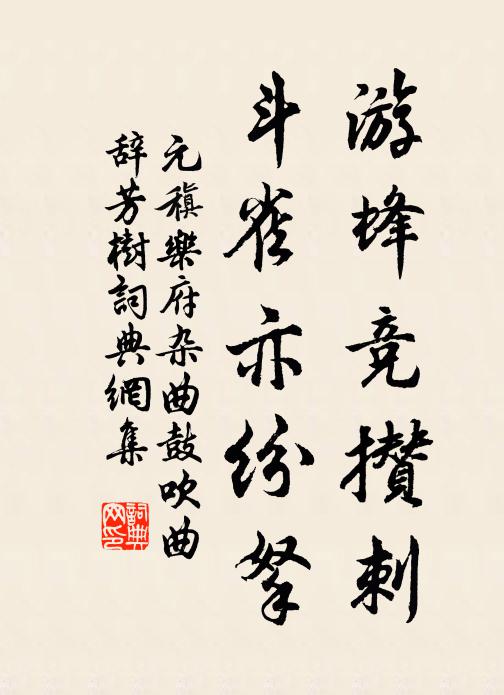 游蜂竞攒刺
斗雀亦纷拏
元稹樂府杂曲鼓吹曲
辞芳樹詞典網集
詞典网印